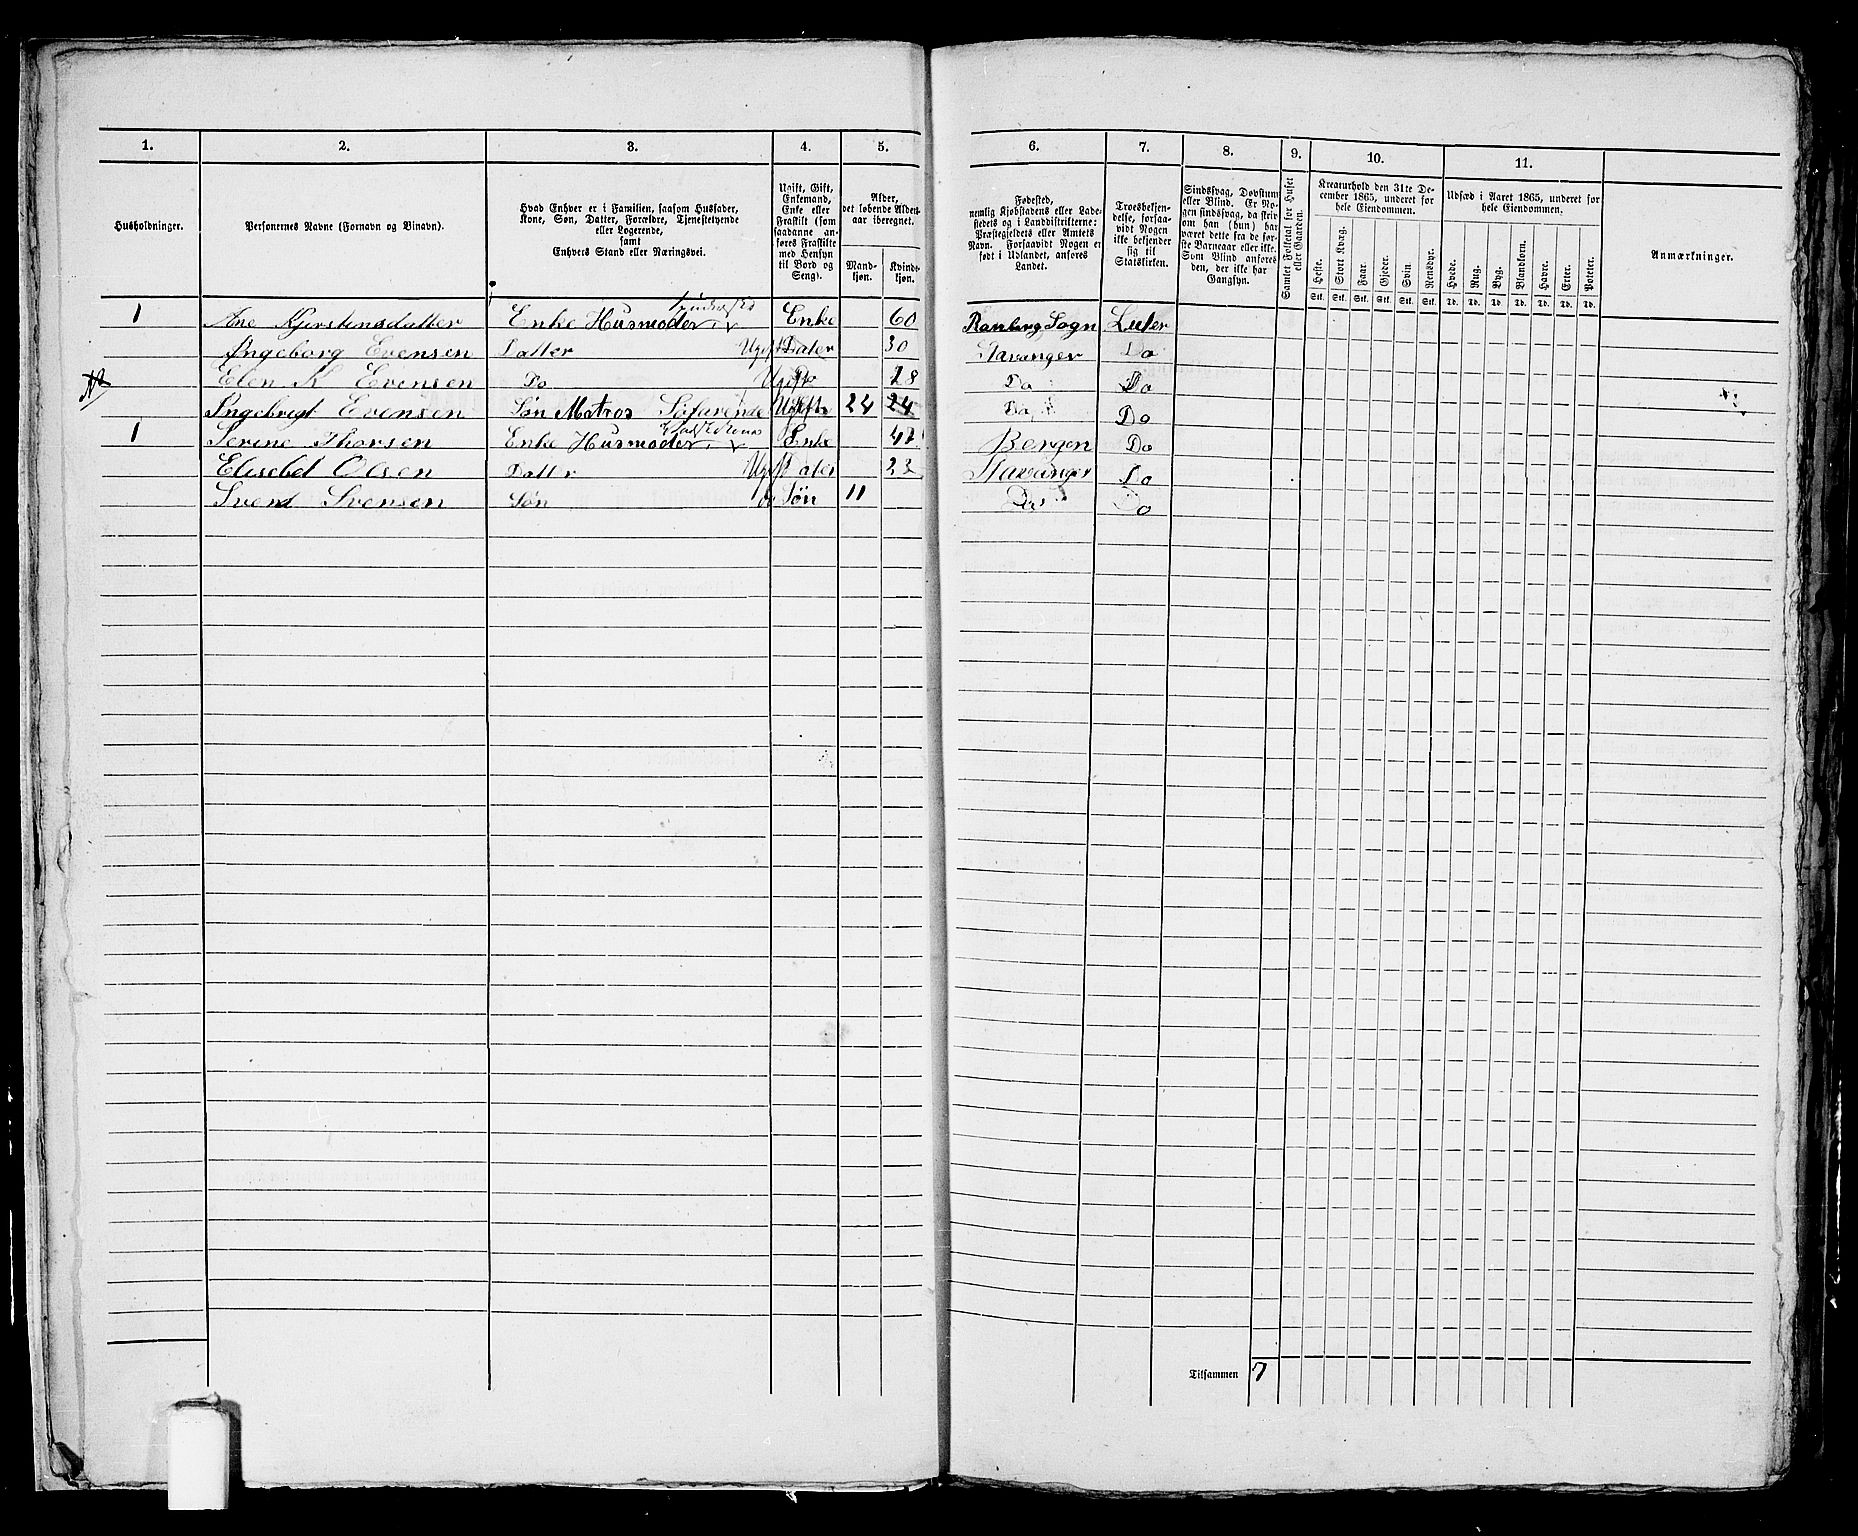 1. 2. 3. 4. 5. 6. 7. 8. 9. 10. 11.
Husholdninger.
Personernes Navne (Fornavn og Binavn).
Hvad Enhver er i Familien, saasom Husfader,
Kone, Søn, Datter, Forældre, Tjenestetyende
eller Logerende,
samt
Enhvers Stand eller Næringsvei.
Ugift, Gift,
Enkemand,
Enke eller
Fraskilt (som
saadanne an-
føres Fraskilte
med Hensyn
til Bord og
Seng).
Alder,
det løbende Alders-
aar iberegnet.
Mand-
kjøn.
Kvinde-
kjøn.
Fødested,
nemlig Kjøbstadens eller Lade-
stedets og i Landdistrikterne:
Præstegjeldets eller Amtets
Navn. Forsaavidt Nogen er
født i Udlandet, anføres
Landet.
Troesbekjen-
delse, forsaa-
vidt Nogen
ikke bekjender
sig til
Statskirken.
Sindssvag, Døvstum
eller Blind. Er No-
gen sindssvag, da skriv
om han (hun) har
været dette fra de før-
ste Barneaar eller ikke.
Som Blind anføres
den, der ikke har
Gangsyn.
Samlet Folketal for Huset
eller Gaarden.
Kreaturhold den 31te De-
cember 1865, underet for
hele Eiendommen.
Heste. Stort Kvæg. Faar. Gjeder. Svin. Rensdyr.
Stk. Stk. Stk. Stk. Stk. Stk.
Udsæd i Aaret 1865, underet for
hele Eiendommen.
Hvede. Rug. Byg. Blandkorn. Havre. Erter. Poteter.
Td. Td. Td. Td. Td. Td. Td.
Anmærkninger.
1 Ane Kjerstensdatter Enke Husmoder Enke 60 Sogn Luter
Ingeborg Evensen Datter Ugift Dater 30 Stavanger Do
Elen K Evensen Do Ugift Do 28 Do Do
Ingebrigt Evensen Søn Matros Søfarende Ugift 24 24 Do Do
1 Serine Thorsen Enke Husmoder Enke 47 Bergen Do
Elisebet Olsen Datter Ugift Dater 23 Stavanger Do
Svend Svensen Søn do Søn 11 Do Do
Tilsammen 7